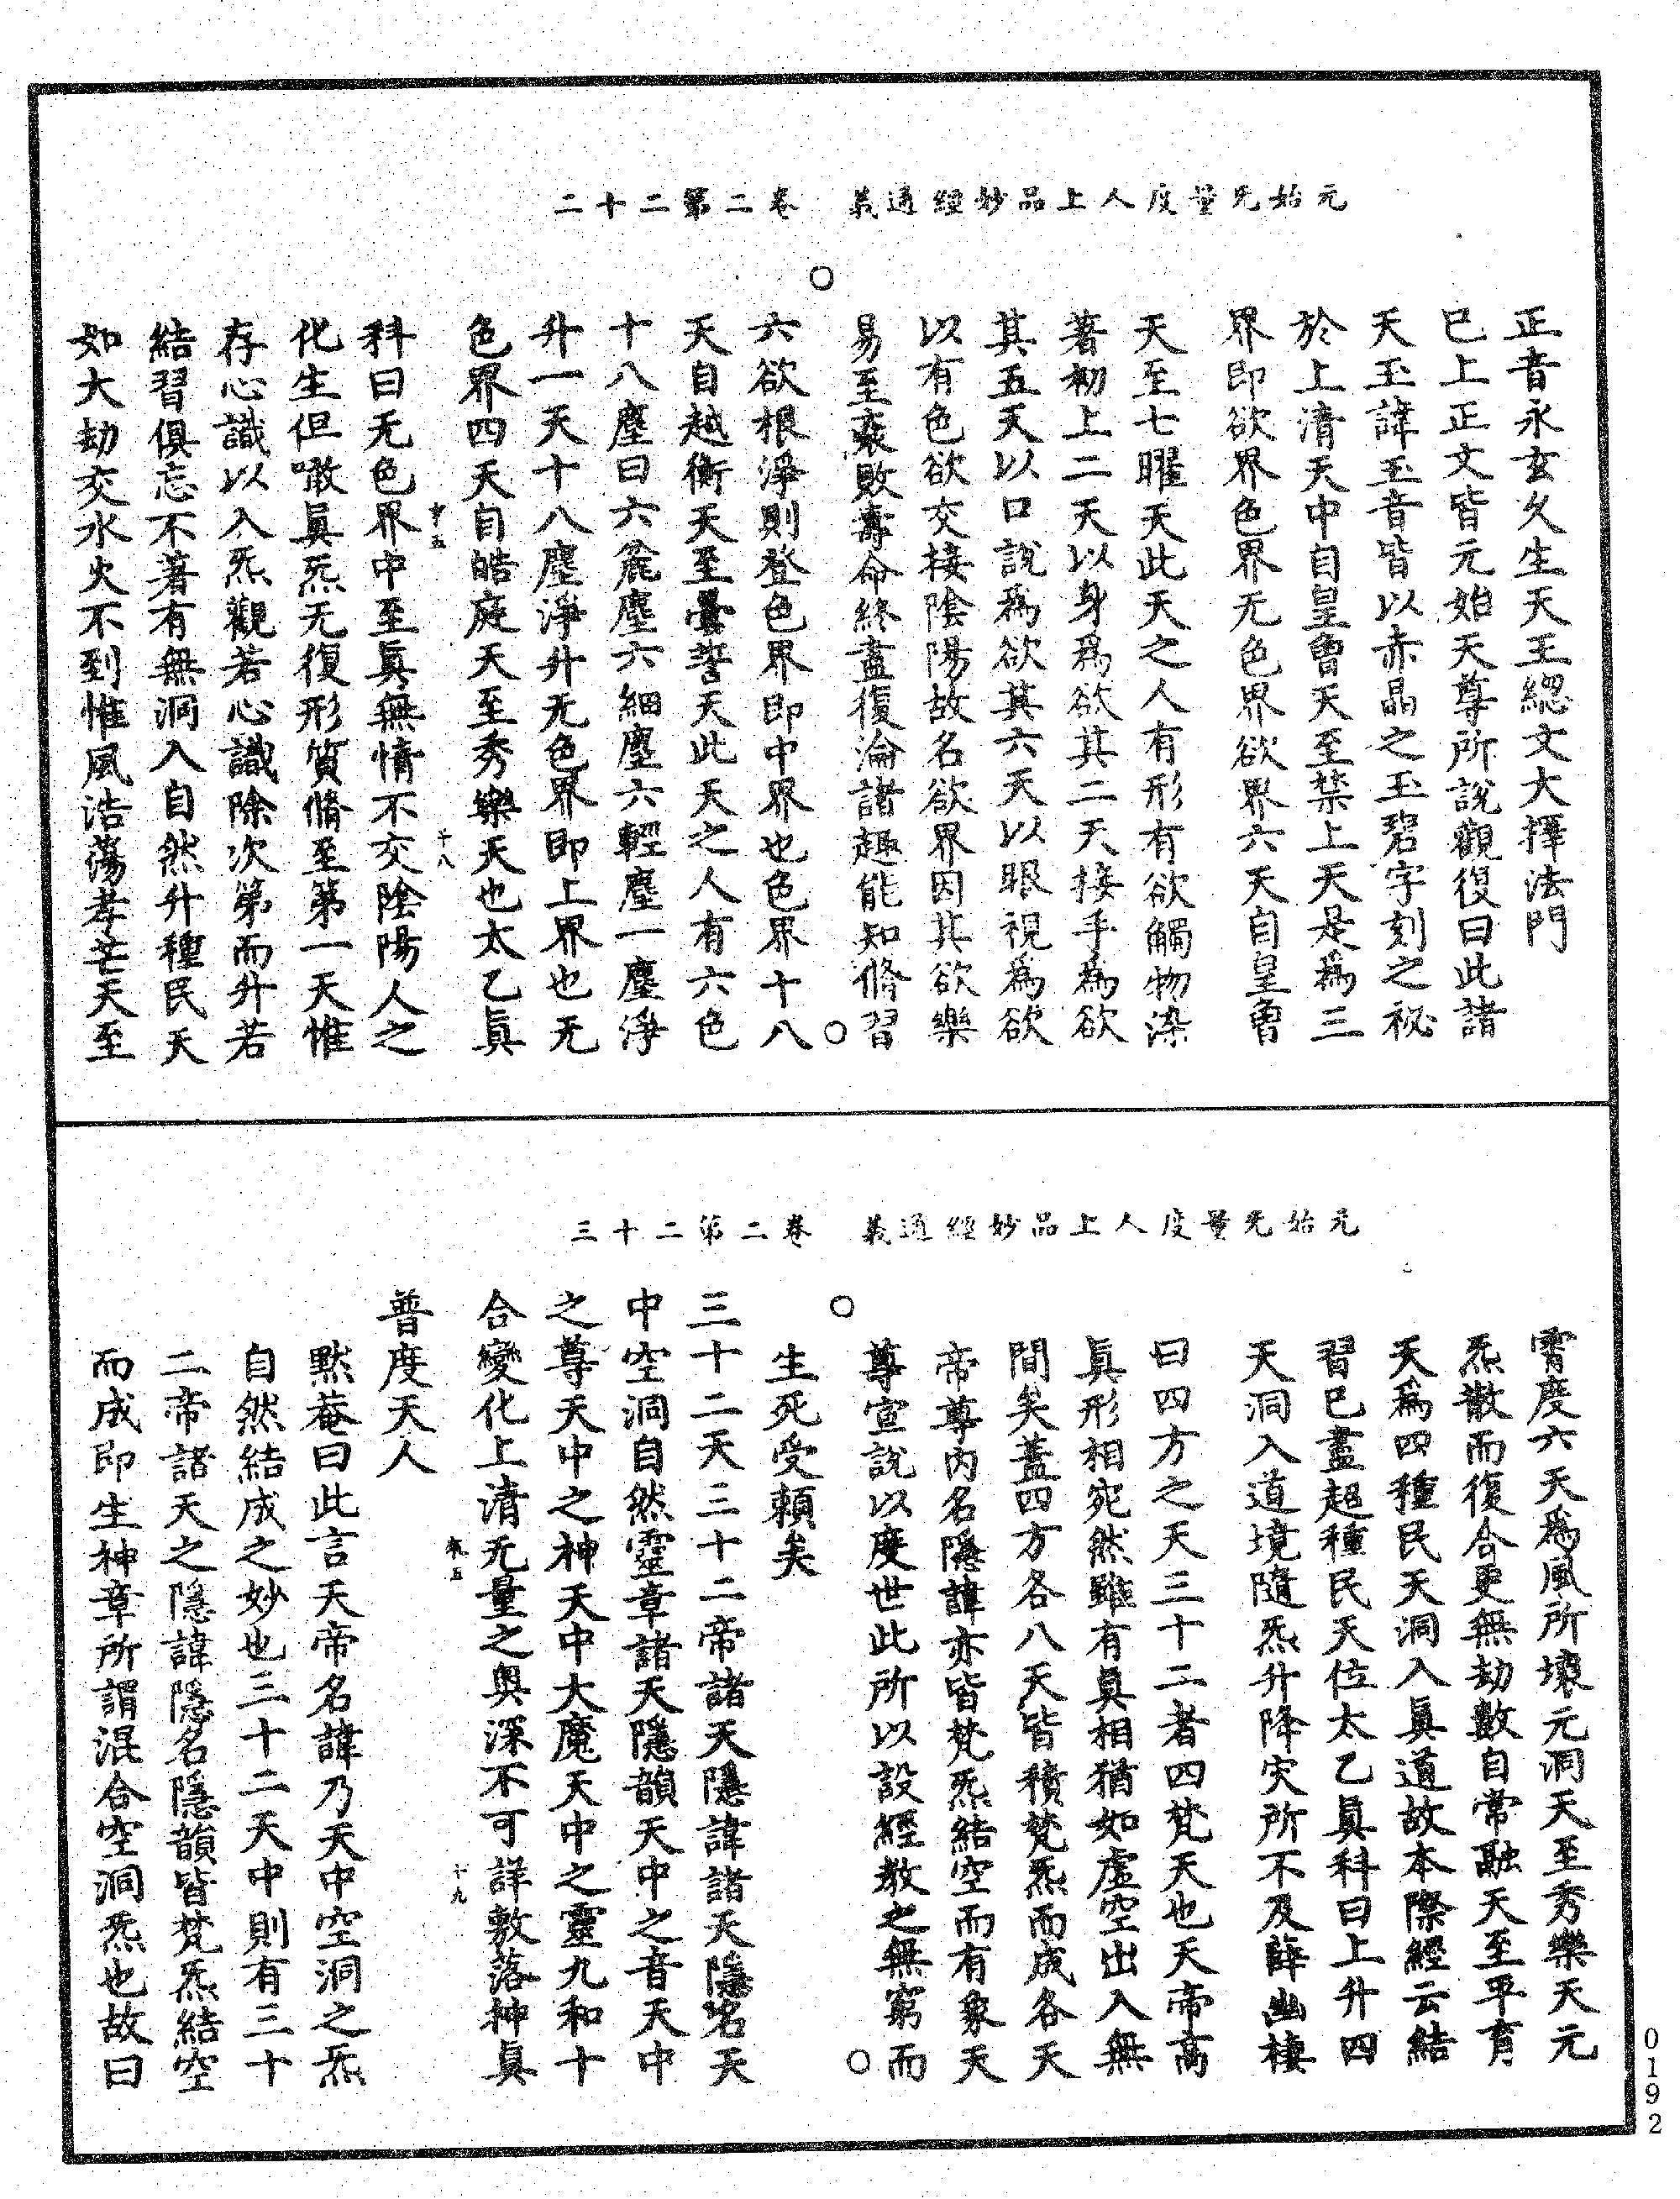 元始无量度人上品妙經通義　卷二第二十二
正音永玄久生天王總文大擇法門
已上正文皆元始天尊所說觀復曰此諸
天玉諱玉音皆以赤晶之玉碧字刻之祕
於上清天中自皇曾天至禁上天是爲三
界即欲界色界无色界欲界六天自皇曾
天至七曜天此天之人有形有欲觸物染
著初上二天以身爲欲其二天接手爲欲
其五天以口說爲欲其六天以眼視爲欲
以有色欲交接陰陽故名欲界因其欲樂
易至衰敗壽命終盡復淪諸趣能知脩習
六欲根淨則登色界即中界也色界十八
天自越衡天至曇誓天此天之人有六色
十八塵曰六麄塵六細塵六輕塵一塵淨
升一天十八塵淨升无色界即上界也无
色界四天自皓庭天至秀樂天也太乙眞
十八
科曰无色界中至眞無情不交陰陽人之
化生但噉眞炁无復形質脩至第一天惟
存心識以入炁觀若心識除次第而升若
結習俱忘不著有無洞入自然升種民天
如大劫交水火不到惟風浩蕩孝芒天至
元始无量度人上品妙經通義　卷二第二十三
霄度六天爲風所壞元洞天至秀樂天元
炁散而復合更無劫數自常融天至平育
天爲四種民天洞入眞道故本際經云結
習已盡超種民天位太乙眞科曰上升四
天洞入道境隨炁升降灾所不及薛幽棲
曰四方之天三十二者四梵天也天帝高
眞形相宛然雖有眞相猶如虛空出入無
間矣蓋四方各八天皆積梵炁而成各天
帝尊內名隱諱亦皆梵炁結空而有象天
尊宣說以度世此所以設經教之無窮而
生死受賴矣
三十二天三十二帝諸天隱諱諸天隱名天
中空洞自然靈章諸天隱韻天中之音天中
之尊天中之神天中大魔天中之靈九和十
合變化上清无量之奥深不可詳敷落神眞
十九
普度天人
默菴曰此言天帝名諱乃天中空洞之炁
自然結成之妙也三十二天中則有三十
二帝諸天之隱諱隱名隱韻皆梵炁結空
而成即生神章所謂混合空洞炁也故曰
0192